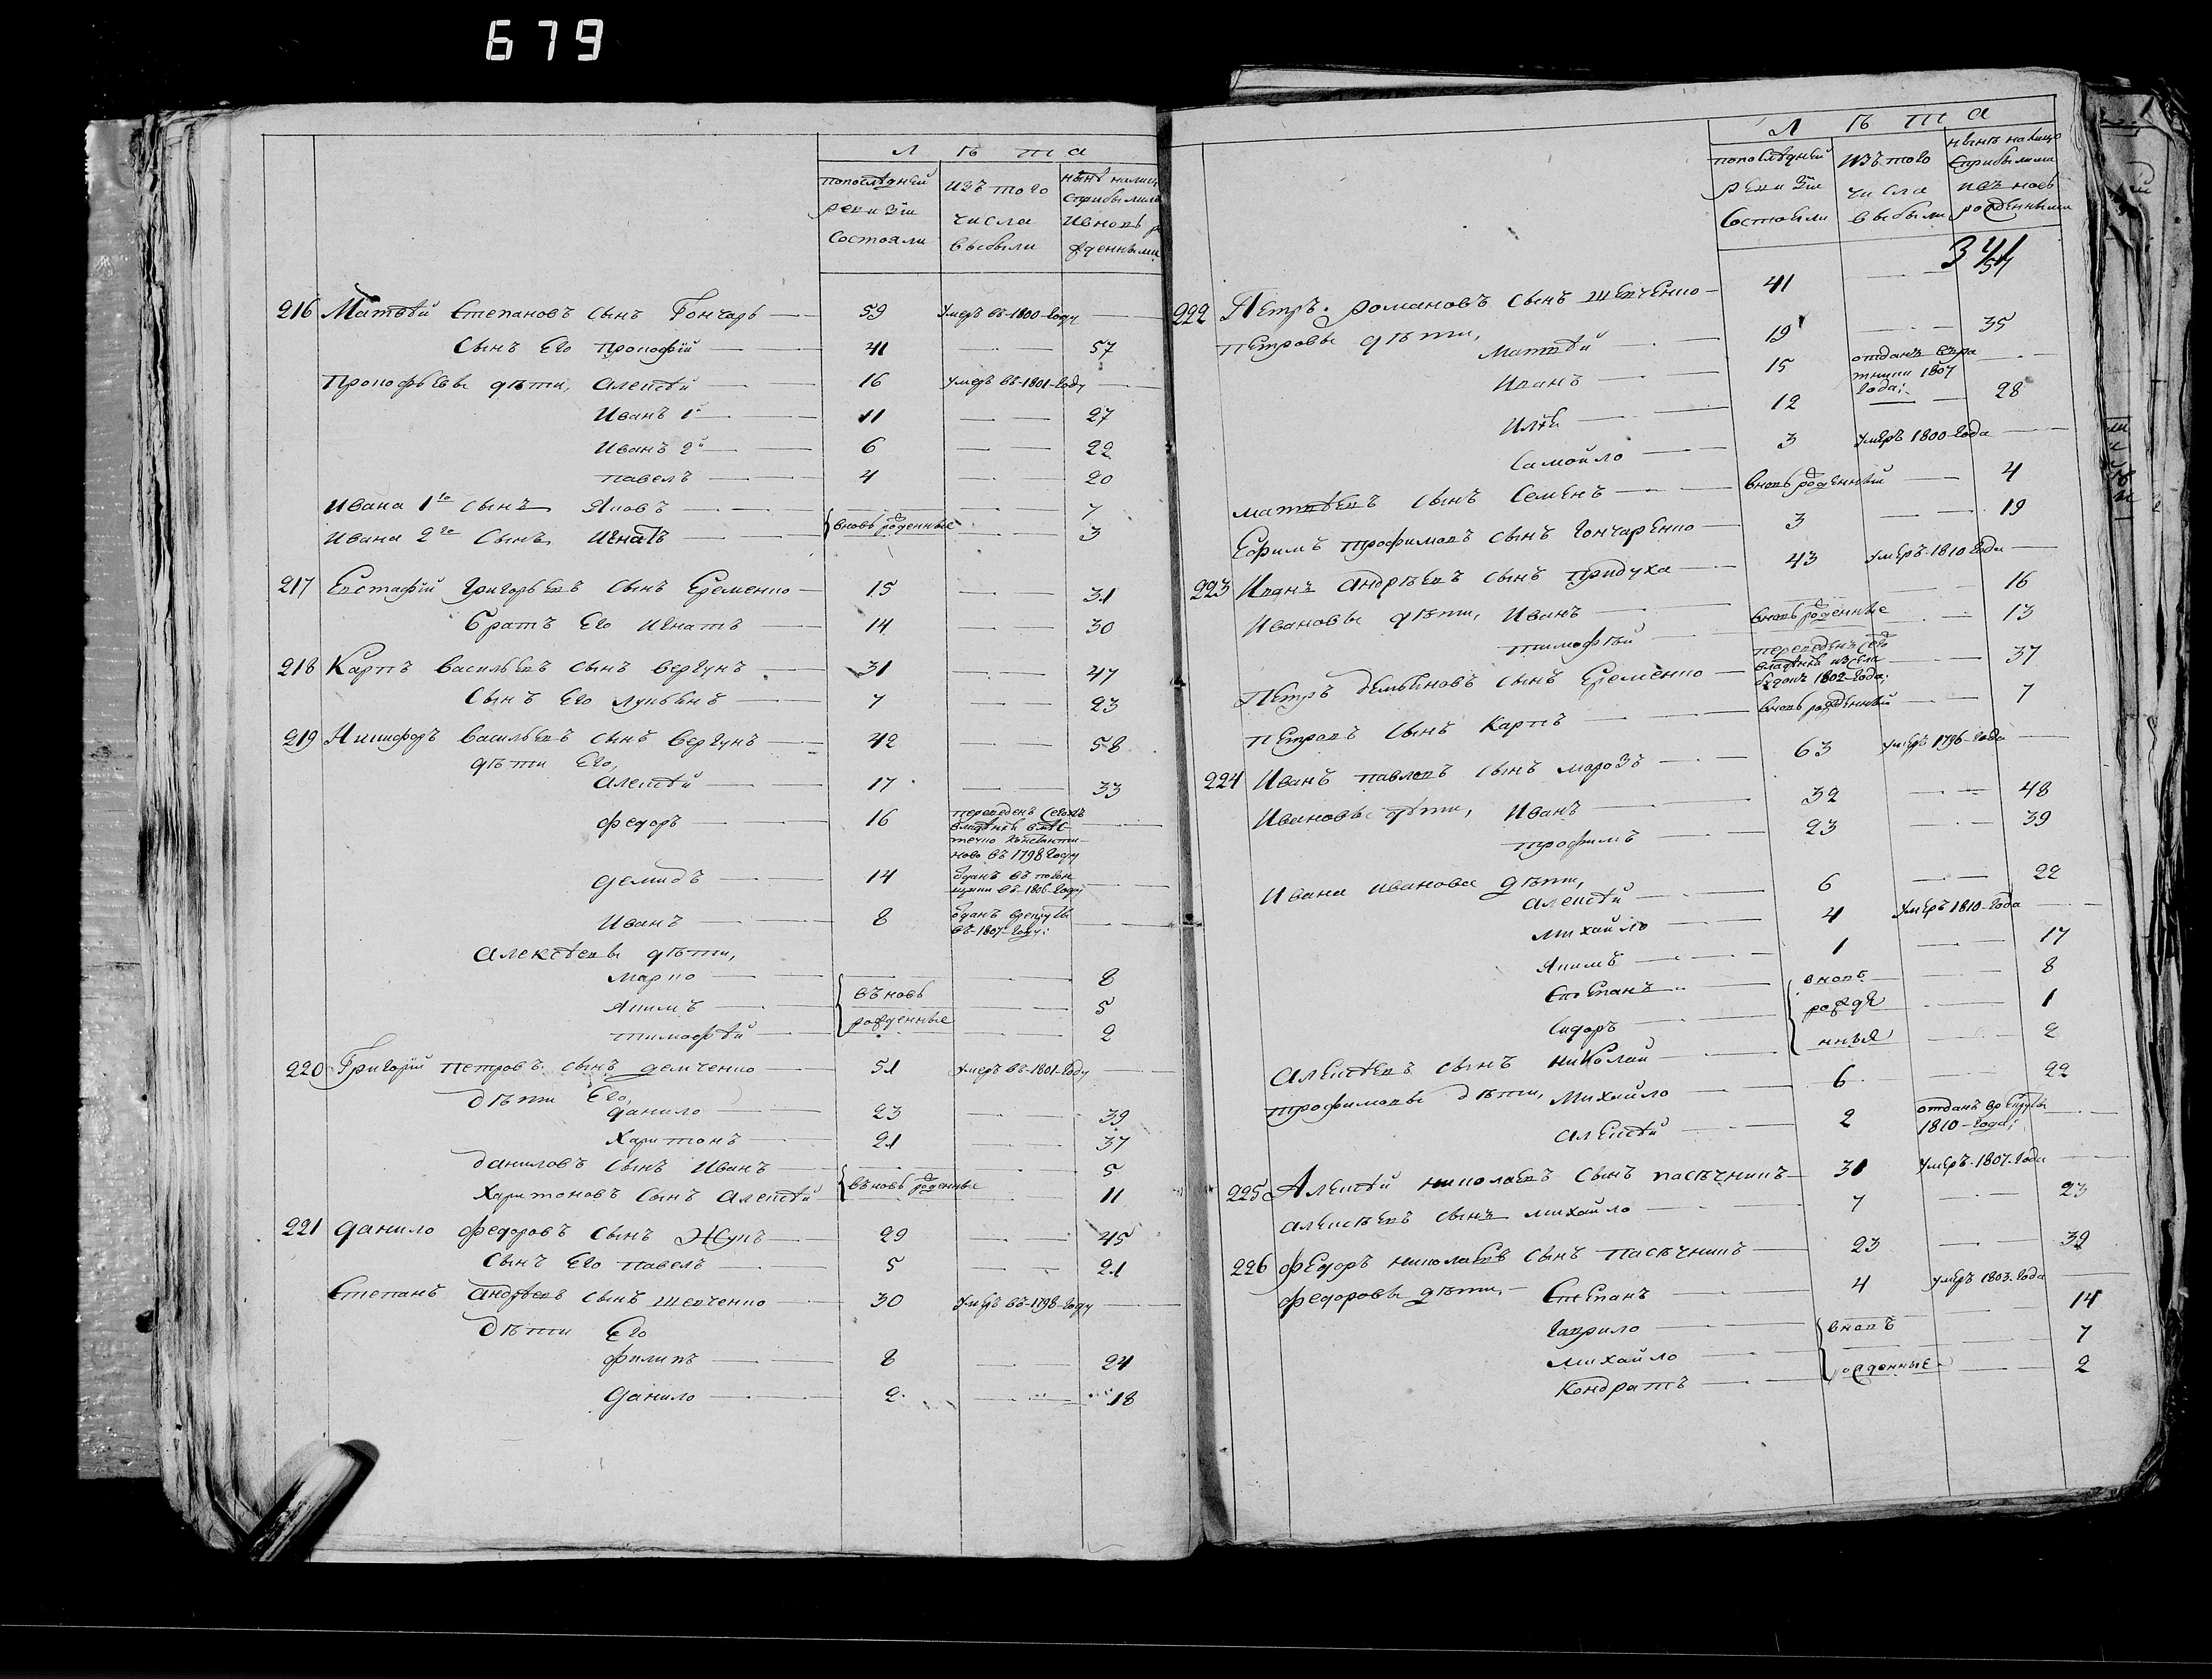 679
Л ѣ т а
по последней ревизіи состояли
изъ того числа выбыли
ныне на лицо с прибылыми и вновь
жденными
216 Матвѣй Степановъ сынъ Гончарь — 59 умеръ въ 1800 году —
сынъ его Прокофій — 41 — 57
Прокофьевы дѣти, Алексѣй — 16 умеръ въ 1801 году —
Иванъ 1й — 11 — 27
Иванъ 2й — 6 — 22
Павелъ — 4 — 20
Ивана 1го сынъ Яковъ — — 7
Ивана 2го сынъ Игнатъ — вновь рожденные — 3
217 Евстафій Григорьевъ сынъ Еременко — 15 — 31
братъ его Игнатъ — 14 — 30
218 Карпъ Васильевъ сынъ Вергунъ — 31 — 47
сынъ его Лукьянъ — 7 — 23
219 Никифоръ Васильевъ сынъ Вергунъ — 42 — 58
дѣти его,
Алексѣй — 17 — 33
Федоръ — 16 переведенъ
въ 1798 году
Демидъ — 14 въ 1806 году —
Иванъ — 8 отданъ врекруты въ 1807 году: —
Алексѣевы дѣти,
Марко — — 8
Якимъ — въновь рожденные — 5
Тимофѣй — — 2
220 Григорій Петровъ сынъ Демченко — 51 умеръ въ 1801 году —
дѣти его,
Данило — 23 — 39
Харитонъ — 21 — 37
Даниловъ сынъ Иванъ — — 5
Харитоновъ сынъ Алексѣй въновь рожденные — 11
221 Данило Федоровъ сынъ Жукъ — 29 — 45
сынъ его Павелъ — 5 — 21
Степанъ Андрѣевъ сынъ Шевченко — 30 умеръ въ 1798 году —
дѣти его
Филипъ — 8 — 24
Данило — 2 — 18
Л ѣ т а
по последней ревизіи состояли
изъ того числа выбыли
с прибылыми
рожденными
341
222 Петръ Романовъ сынъ Шевченко — 41 —
Петровы дѣти,
Матвѣй — 19 — 35
Иванъ — 15 отданъ 1807 года: —
Илья — 12 — 28
Самойло — 3 умеръ 1800 года —
Матвѣевъ сынъ Семенъ — вновь рожденный — 4
Ефимъ Трофимовъ сынъ Гончаренко — 3 — 19
223 Иванъ Андрѣевъ сынъ Придуха — 43 умеръ 1810 года —
Ивановы дѣти, Иванъ — вновь рожденные — 16
Тимофѣй — — 13
Петръ Демьяновъ сынъ Еременко — переведенъ изъ села 1802 года: — 37
Петровъ сынъ Карпъ — вновь рожденный — 7
224 Иванъ Павловъ сынъ Морозъ — 63 умеръ 1796 года —
Ивановы дѣти, Иванъ — 32 — 48
Трофимъ — 23 — 39
Ивана Иванова дѣти,
Алексѣй — 6 — 22
Михайло — 4 умеръ 1810 года —
Якимъ — 1 — 17
Степанъ — вновь — 8
Сидоръ — рожде — 1
Алексѣевъ сынъ Николай — нныя — 2
Трофимовы дѣти, Михайло — 6 — 22
Алексѣй — 2 отданъ врекруты 1810 года: —
225 Алексѣй Николаевъ сынъ Пасѣчникъ — 31 умеръ 1807 года —
Алексѣевъ сынъ Михайло — 7 — 23
226 Федоръ Николаевъ сынъ Пасѣчникъ — 23 — 39
Федоровы дѣти, — Степанъ — 4 умеръ 1803 года —
Гаврило — вновъ — 14
Михайло — рожденные — 7
Кондратъ — — 2